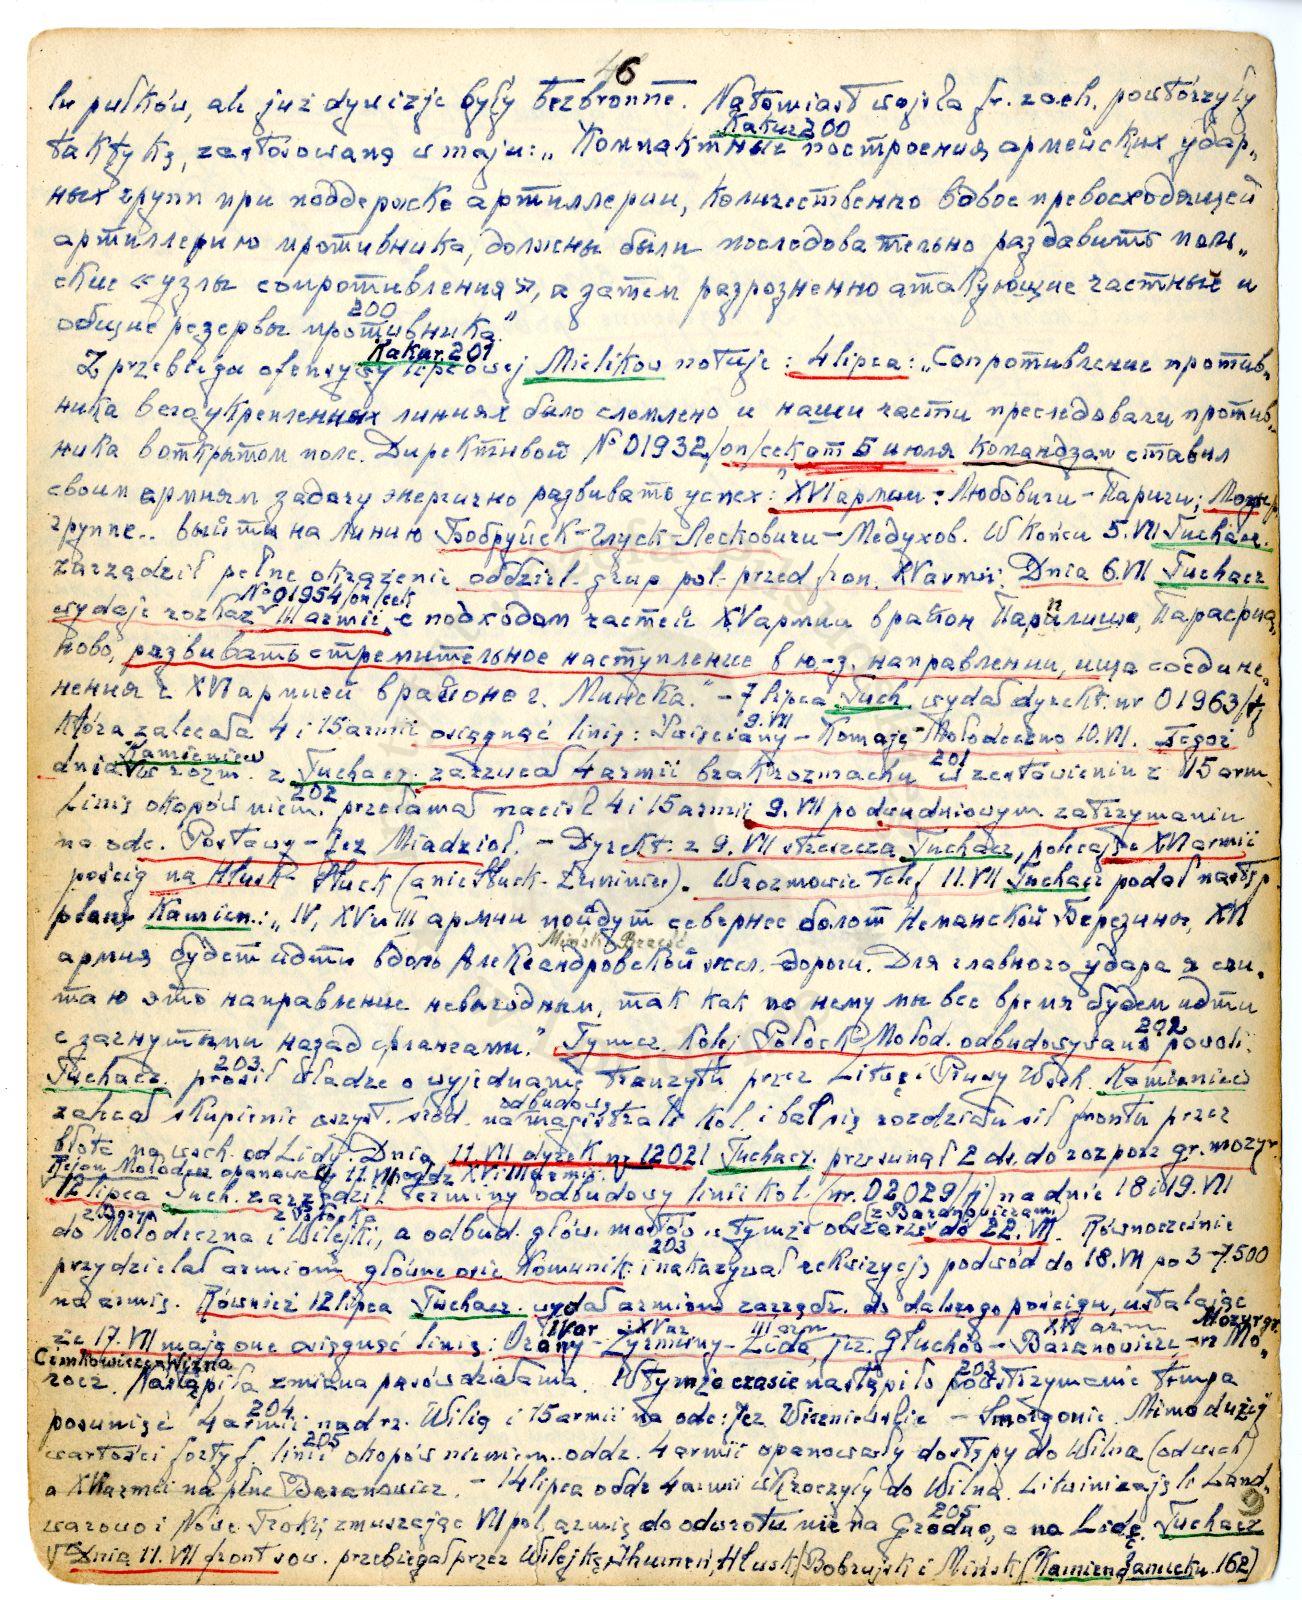 46
lu pułków, ale już dywizje były bezbronne. Natomiast wojska fr. zach. powtórzyły
Kakur. 200
taktykę, zastosowaną w maju: „Компактные построения армейских удар-
ных групп при поддержке артиллерии, количественно вдвое превосходящей
артиллерию противника, должны были последовательно раздавить поль-
ские «узлы сопротивления», а затем разрозненно атакующие частные и
200
общие резервы противника."
Kakur. 201
Z przebiegu ofensywy lipcowej Mielikow notuje: 4 lipca: „Сопротивление против-
ника в его укрепленных линиях было сломлено и наши части преследовали против-
ника в открытом поле. Директивой № 01932/оп/сек от 5 июля Командзап ставил
своим армиям задачу энергично развивать успех: "XVI армии: Любовичи – Паричи; Мозыр.
группе.. выйти на линию Бобруйск-Глуск-Лесковичи-Медухов. W końcu 5.VII Tuchacz.
zarządził pełne okrążenie oddziel. grup pol. przed fron. XV armii. Dnia 6.VII Tuchacz
№ 01954/оп/сек
wydaje rozkaz III armii „с подходом частей XV армии в район Парилище, Парафиа-
ново, развивать стремительное наступление в ю-з. направлении, ища соедине-
нения с XVI армией в районе г. Минска." – 7 lipca Tuch. wydał dyrekt. nr 01963/
9.VII
która zalecała 4 i 15 armii osiągnąć linię: Święciany – Komaje – Mołodeczno 10.VII. Tegoż
Kamieniew
dnia w rozm. z Tuchacz. zarzucał 4 armii brak rozmachu w zestawieniu z 15 arm.
201
202
Linię okopów niem. przełamał nacisk 4 i 15 armii 9.VII po dwudniowym zatrzymaniu
na odc. Postawy – Jez. Miadzioł. – Dyrekt. z 9.VII streszcza Tuchacz, polecając XVI armii
pościg na Hłusk – Słuck (a nie Słuck – Łuniniec). W rozmowie telef. 11.VII Tuchacz podał następ.
plany Kamien.: „IV, XV и III армии пойдут севернее болот Неманской Березины, XVI
Mińsk Brześć
армия будет идти вдоль Александровской жел. дороги. Для главного удара я счи-
таю это направление невыгодным, так как по нему мы все время будем идти
202
с загнутыми назад флангами." Tymcz. kolej Połock – Mołod. odbudowywano powoli.
203
Tuchacz. prosił władze o wyjednanie tranzytu przez Litwę i Prusy Wsch. Kamieniew
odbudowę
zalecał skupienie wszyst. środ. na magistrali kol. i bał się rozdziału sił frontu przez
błota na wsch. od Lidy. Dnia 11.VII dyrek nr 12021 Tuchacz. przesunął 2 ds. do rozporz. gr. mozyr.
Rejon Mołodecz. opanowały 11.VII oddz XV i III armii.
12 lipca Tuch. zarządził terminy odbudowy linii kol. (nr. 02029/) na dnie 18 i 19.VII
z Borys. z Połocka (z Baranowiczami)
do Mołodeczna i Wilejki, a odbud. głów. mostów w tymże obszarze do 22.VII. Równocześnie
203
przydzielał armiom główne osie komunik. i nakazywał rekwizycję podwód do 18.VII po 3-7.500
na armię. Również 12 lipca Tuchacz. wydał armiom zarządz. do dalszego pościgu, ustalając
IV ar i XV ar III arm XVI arm Mozyr gr.
że 17.VII mają one osiągnąć linię: Orany – Żyrmuny – Lida, jez. Głuchów – Baranowicze – rz. Mo-
Cimkowicze – Wizna
rocz. Nastąpiła zmiana pasów działania. W tymże czasie nastąpiło powstrzymanie tempa
203
204
posunięć 4 armii nad rz. Wilią i 15 armii na odc: Jez. Wiszniewskie – Smorgonie. Mimo dużej
205
wartości fortyf. linii okopów niemiem. oddz. 4 armii opanowały dostępy do Wilna (od wsch)
a XVI armii na płnc Baranowicz. – 14 lipca oddz 4 armii wkroczyły do Wilna. Litwini zajęli Land-
205
warowo i Nowe Troki, zmuszając VII pol. armię do odwrotu nie na Grodno, a na Lidę. Tuchacz
Dnia 11.VII front sow. przebiegał przez Wilejkę, Ihumeń, Hłusk, Bobrujsk i Mińsk (Kamien. 162)
9